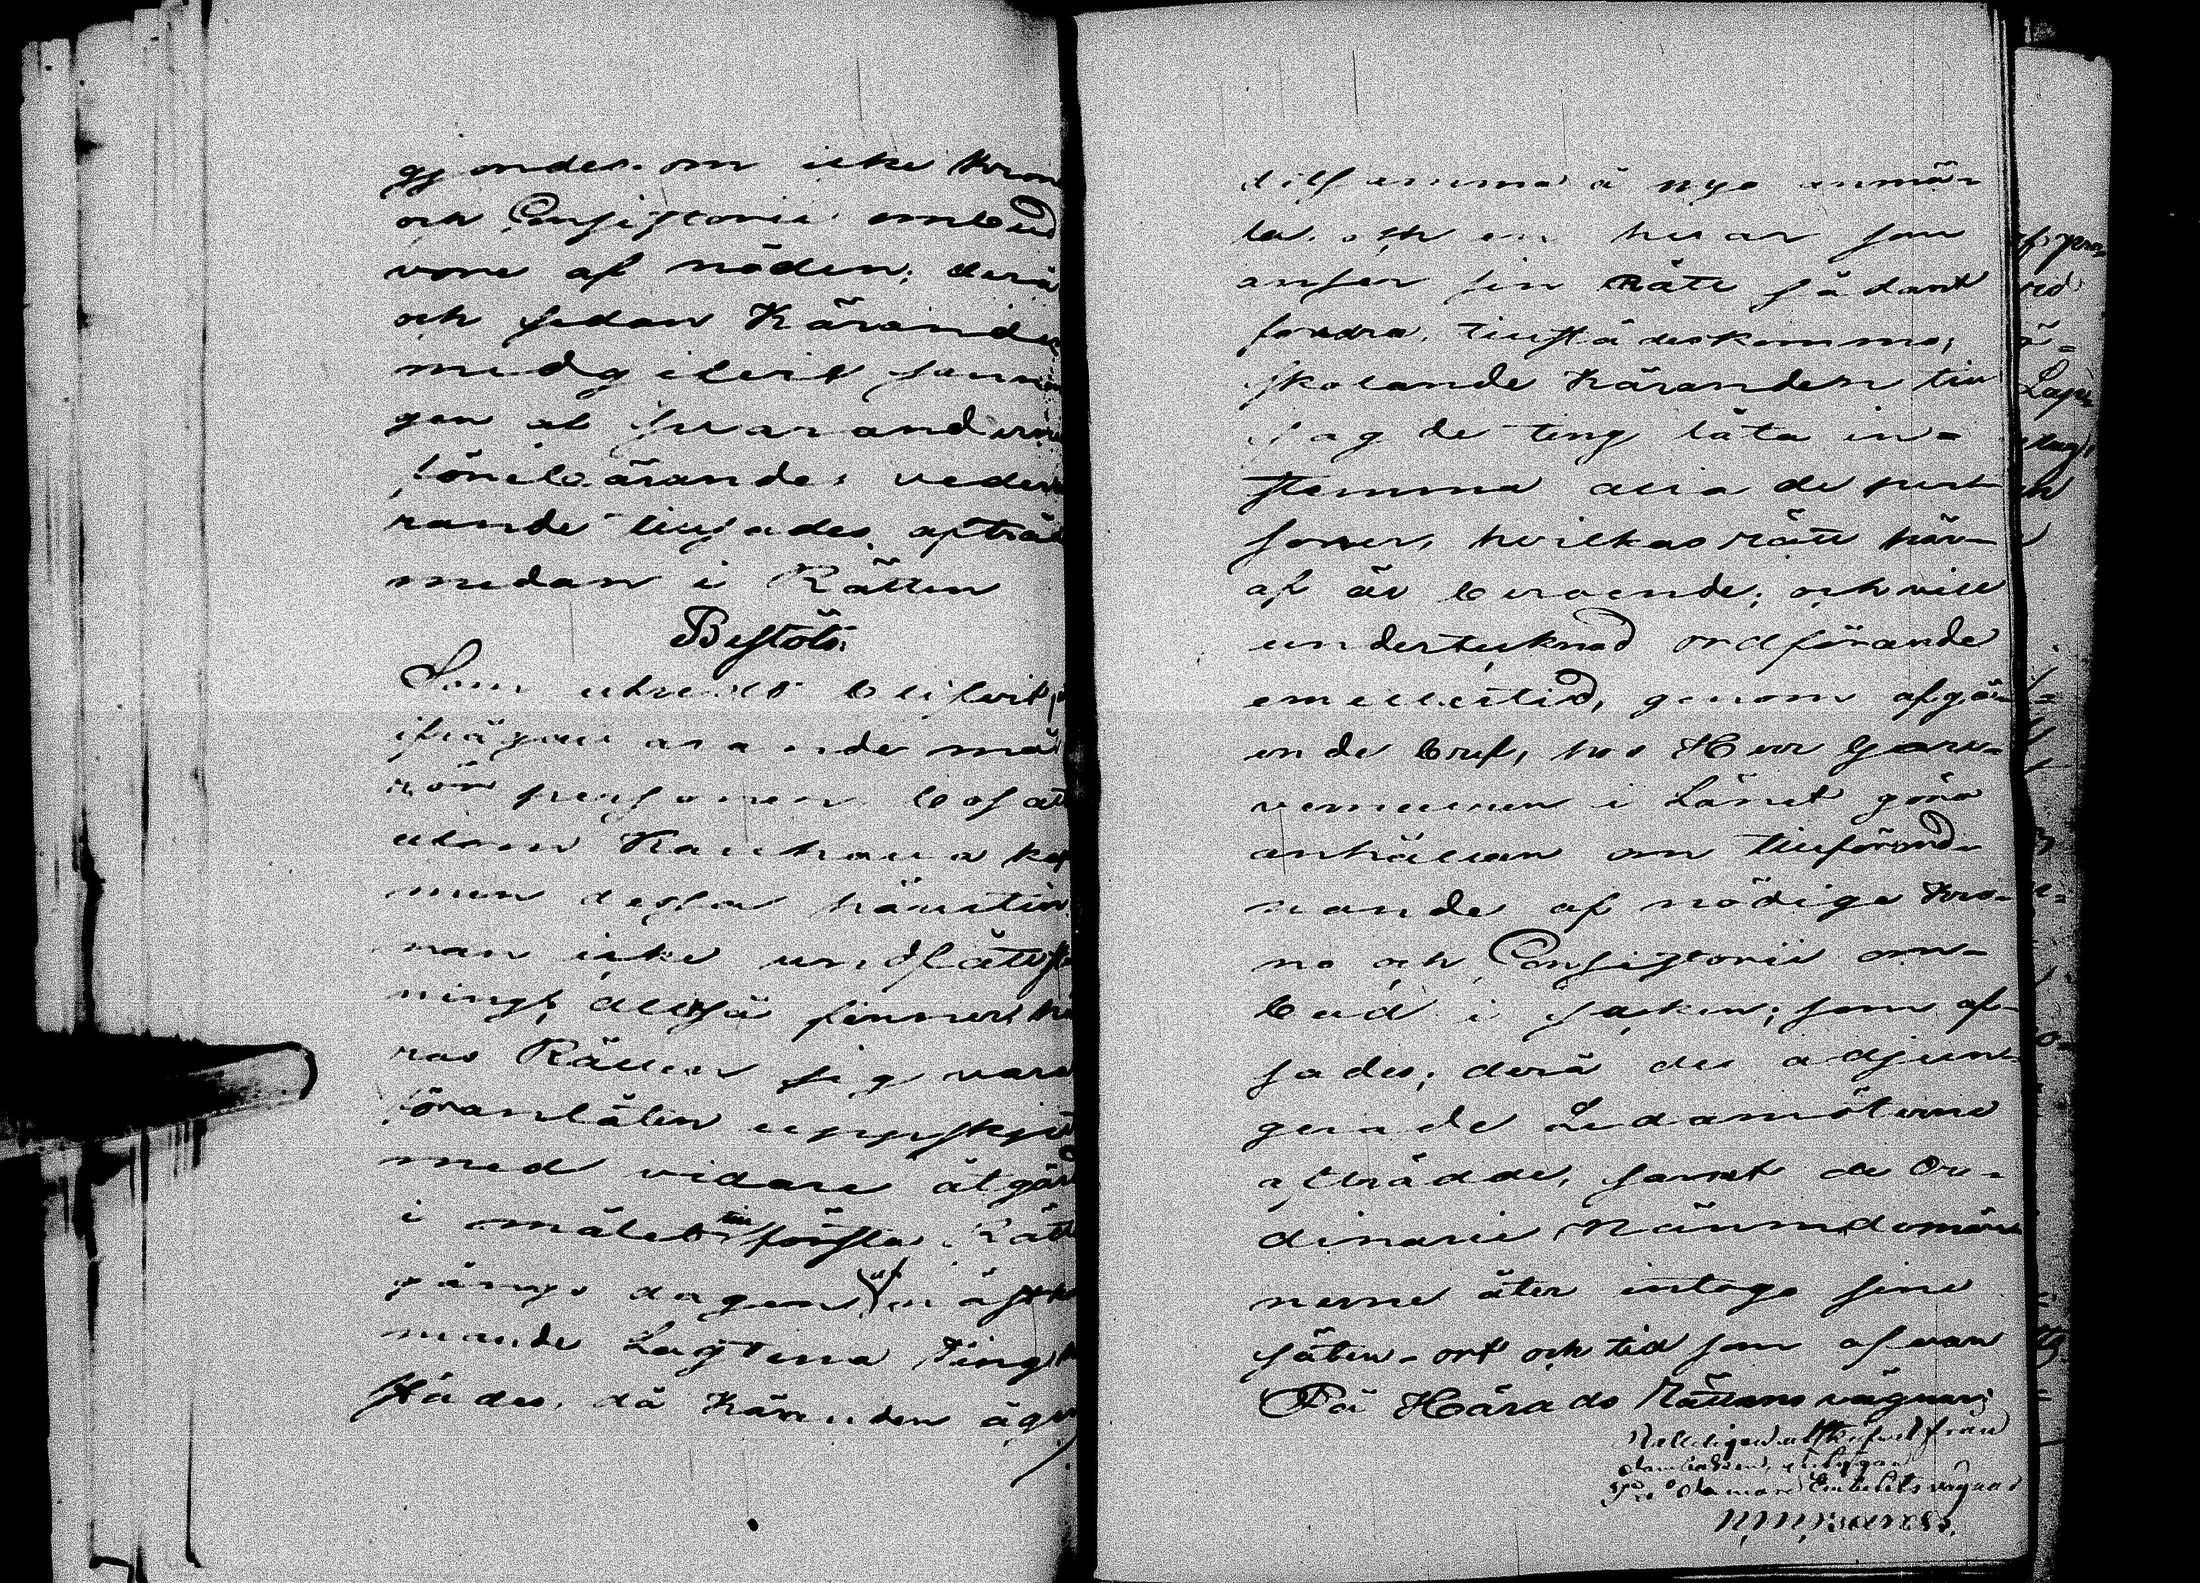 gjordes. om icke Kron
och Consistorii ombud
vore af nöden; derå
och sedan Kärande
medgifvit
gen af Svaranderne
förebärande,
rande tillsades afträda
medan i Rätten
Beslöts:
Som utredt blifvit,
ifrågavarande
personer bosatt
utom Kauhava kap
men dessa härintin
nan icke undfått
ning, alltså finner Hä
rads Rätten sig vara
föranlåten uppskju
med vidare åtgärd
i målet till första Rätt
gångs dagen af nästk
mande Lagtima Ting
städes, då Käranden äger
tillsamma å nyo anmä-
la. och en hvar som
anser sin Rätt sådant
fordra, tillstädeskomma;
skolande Käranden till
sag de ting låta in-
stemma alla de per-
soner, hvilkas rätt här-
af är beroende; och vill
undertecknad ordförande
emellertid, genom afgå-
ende bref, hos Herr Guver-
neuren i Länet göra
anhållan om tillförord-
nande af nödige Kro-
no och Consistorii om-
bud i saken; som af-
sades; derå de adjun-
gerade Ledamöterne
afträdde, samt de Or-
dinarie Nämndemän
nerne åter intogo sine
säten - ort och tid som ofvan
På Härads Rättens vägnar;
från
Embetets vägnar